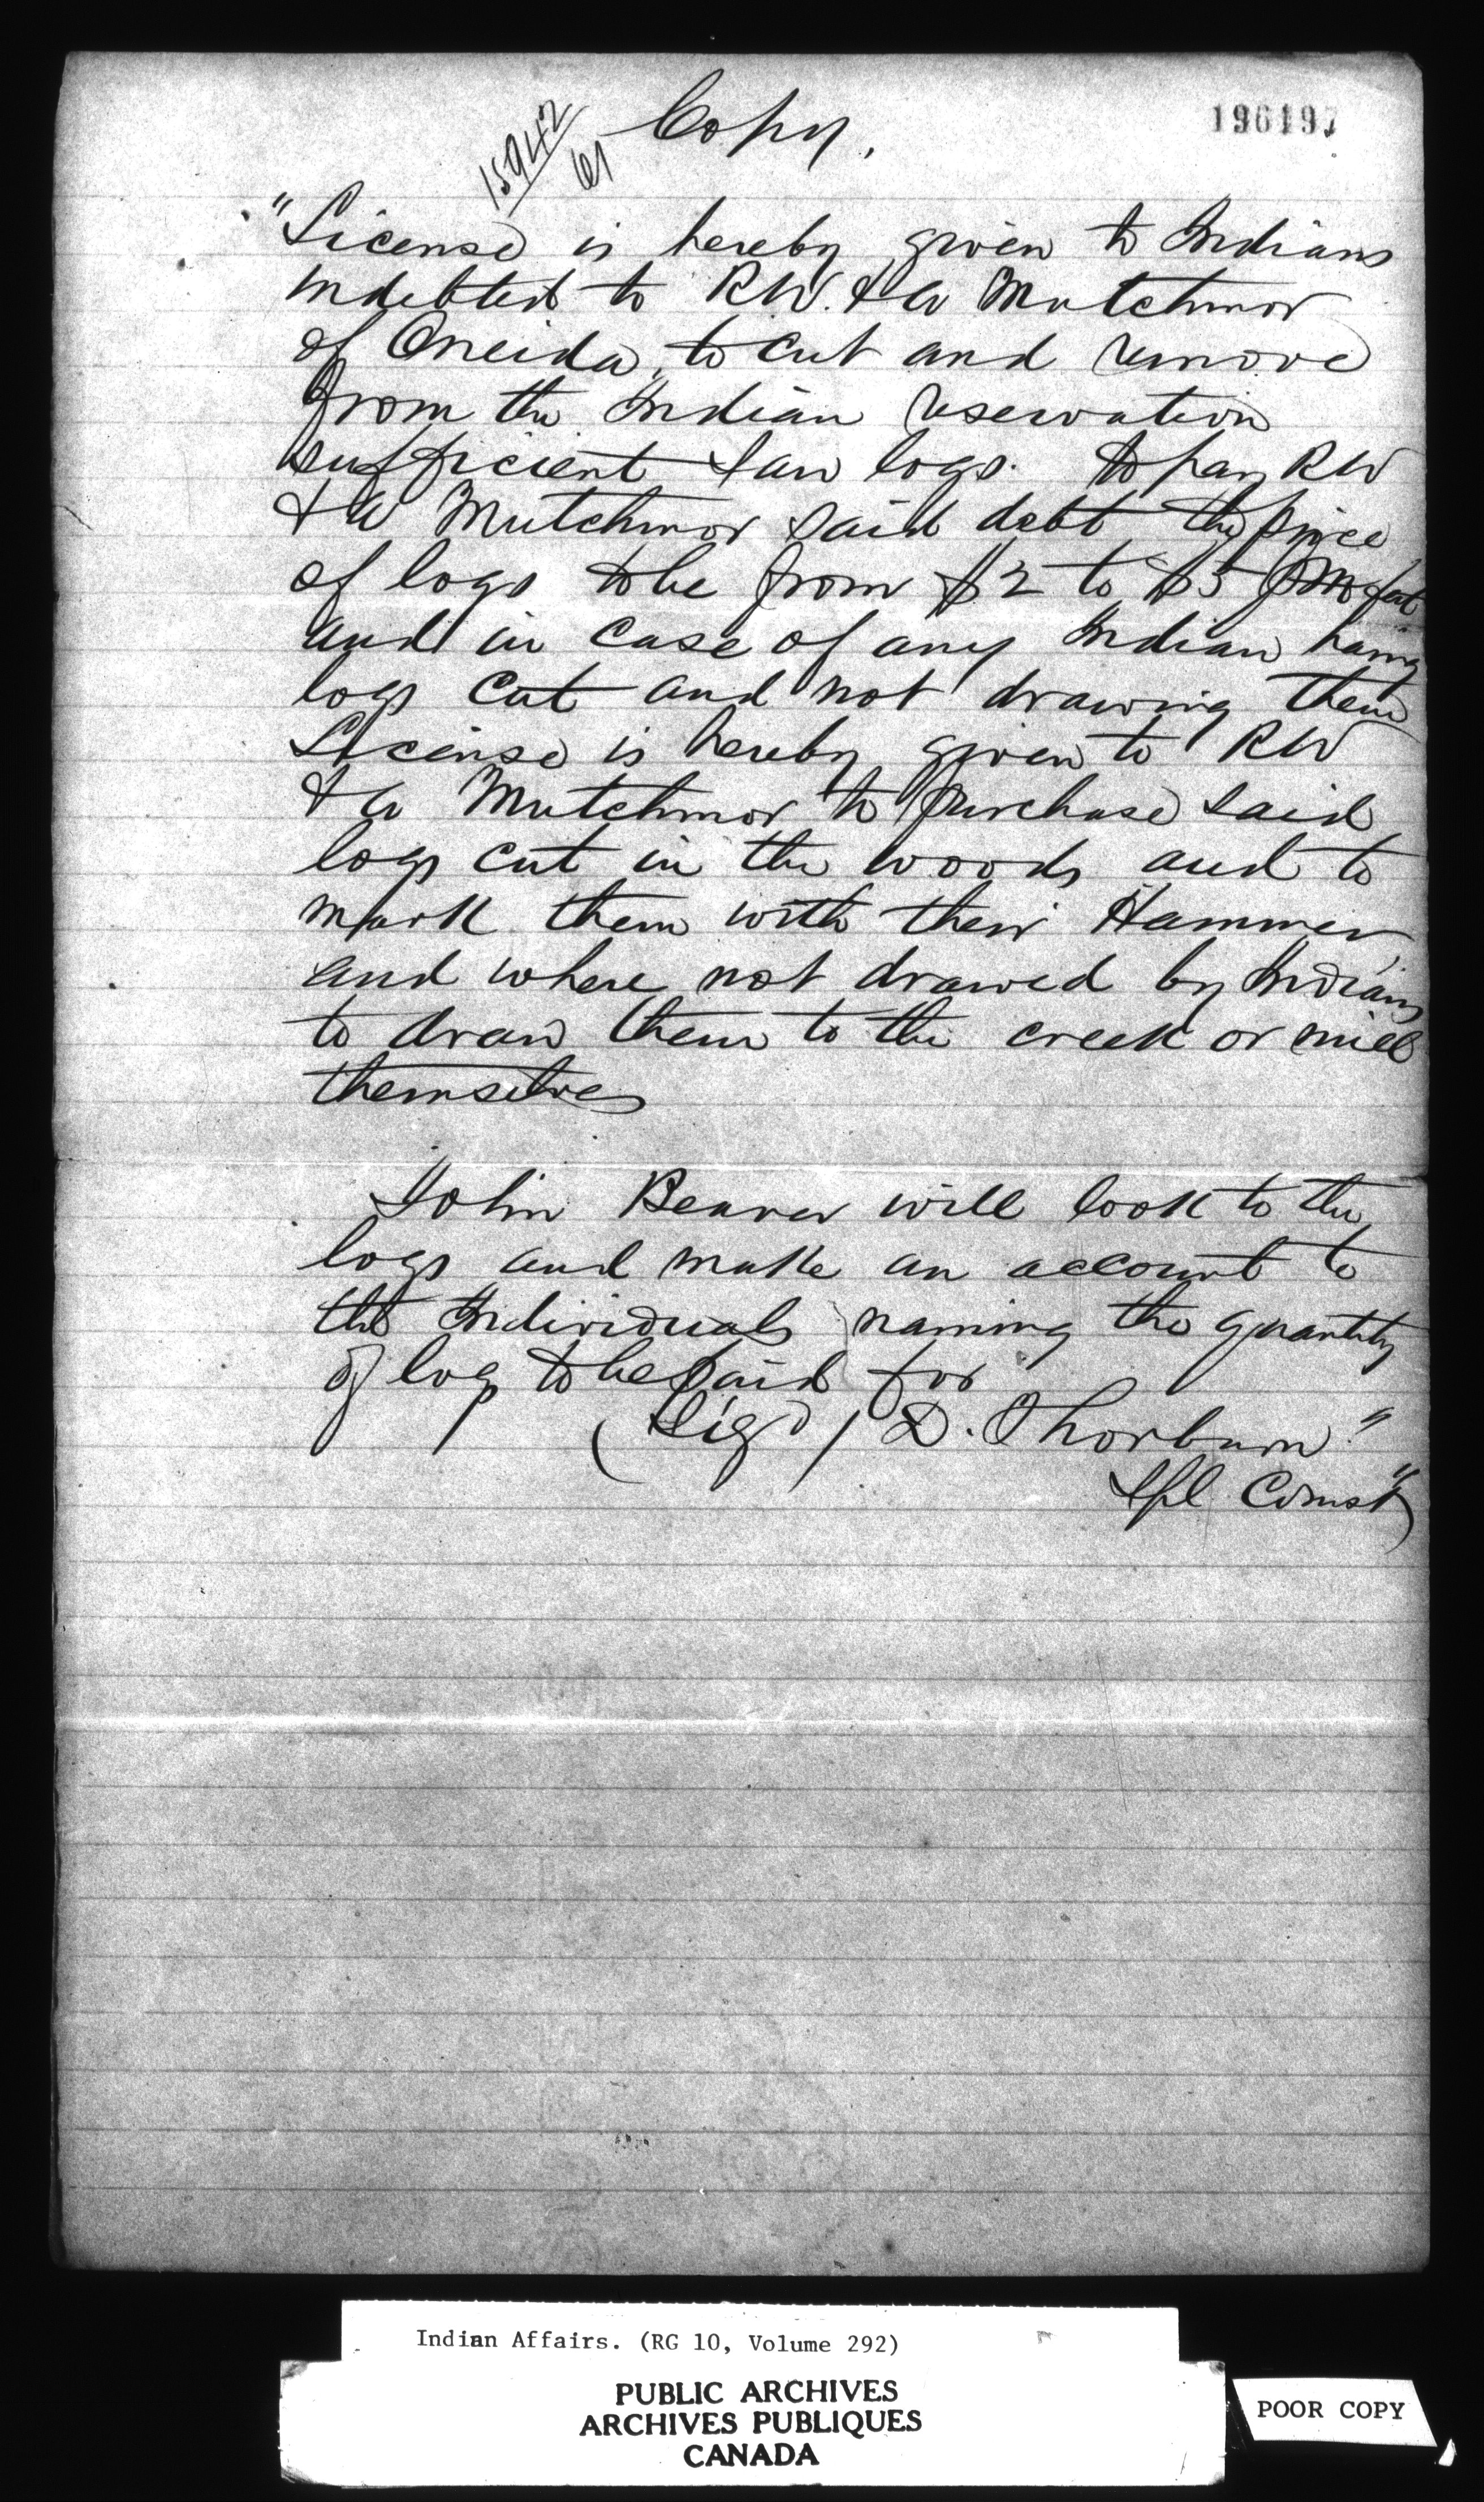 Copy.
196197
15942
61
"License is hereby given to Indians
indebted to RW. & W Mutchmor
of Oneida, to cut and remove
from the Indian reservation
sufficient saw logs. to pay RW
& W Mutchmor said debt, the price
of logs to be from $2 to $5 feet
and in case of any Indian having
logs cut and not drawing them
License is hereby given to RW
& W Mutchmor to purchase said
logs cut in the woods and to
mark them with their Hammer
and where not drawed by Indians
to draw them to the creek or mill
themselves
John Beaver will look to the
logs and make an account to
the Individuals naming the quantity
of logs to be paid for
(Sigd) D. Thorburn"
Spl Comsr"
Indian Affairs. (RG 10, Volume 292)
PUBLIC ARCHIVES
ARCHIVES PUBLIQUES
CANADA
POOR COPY